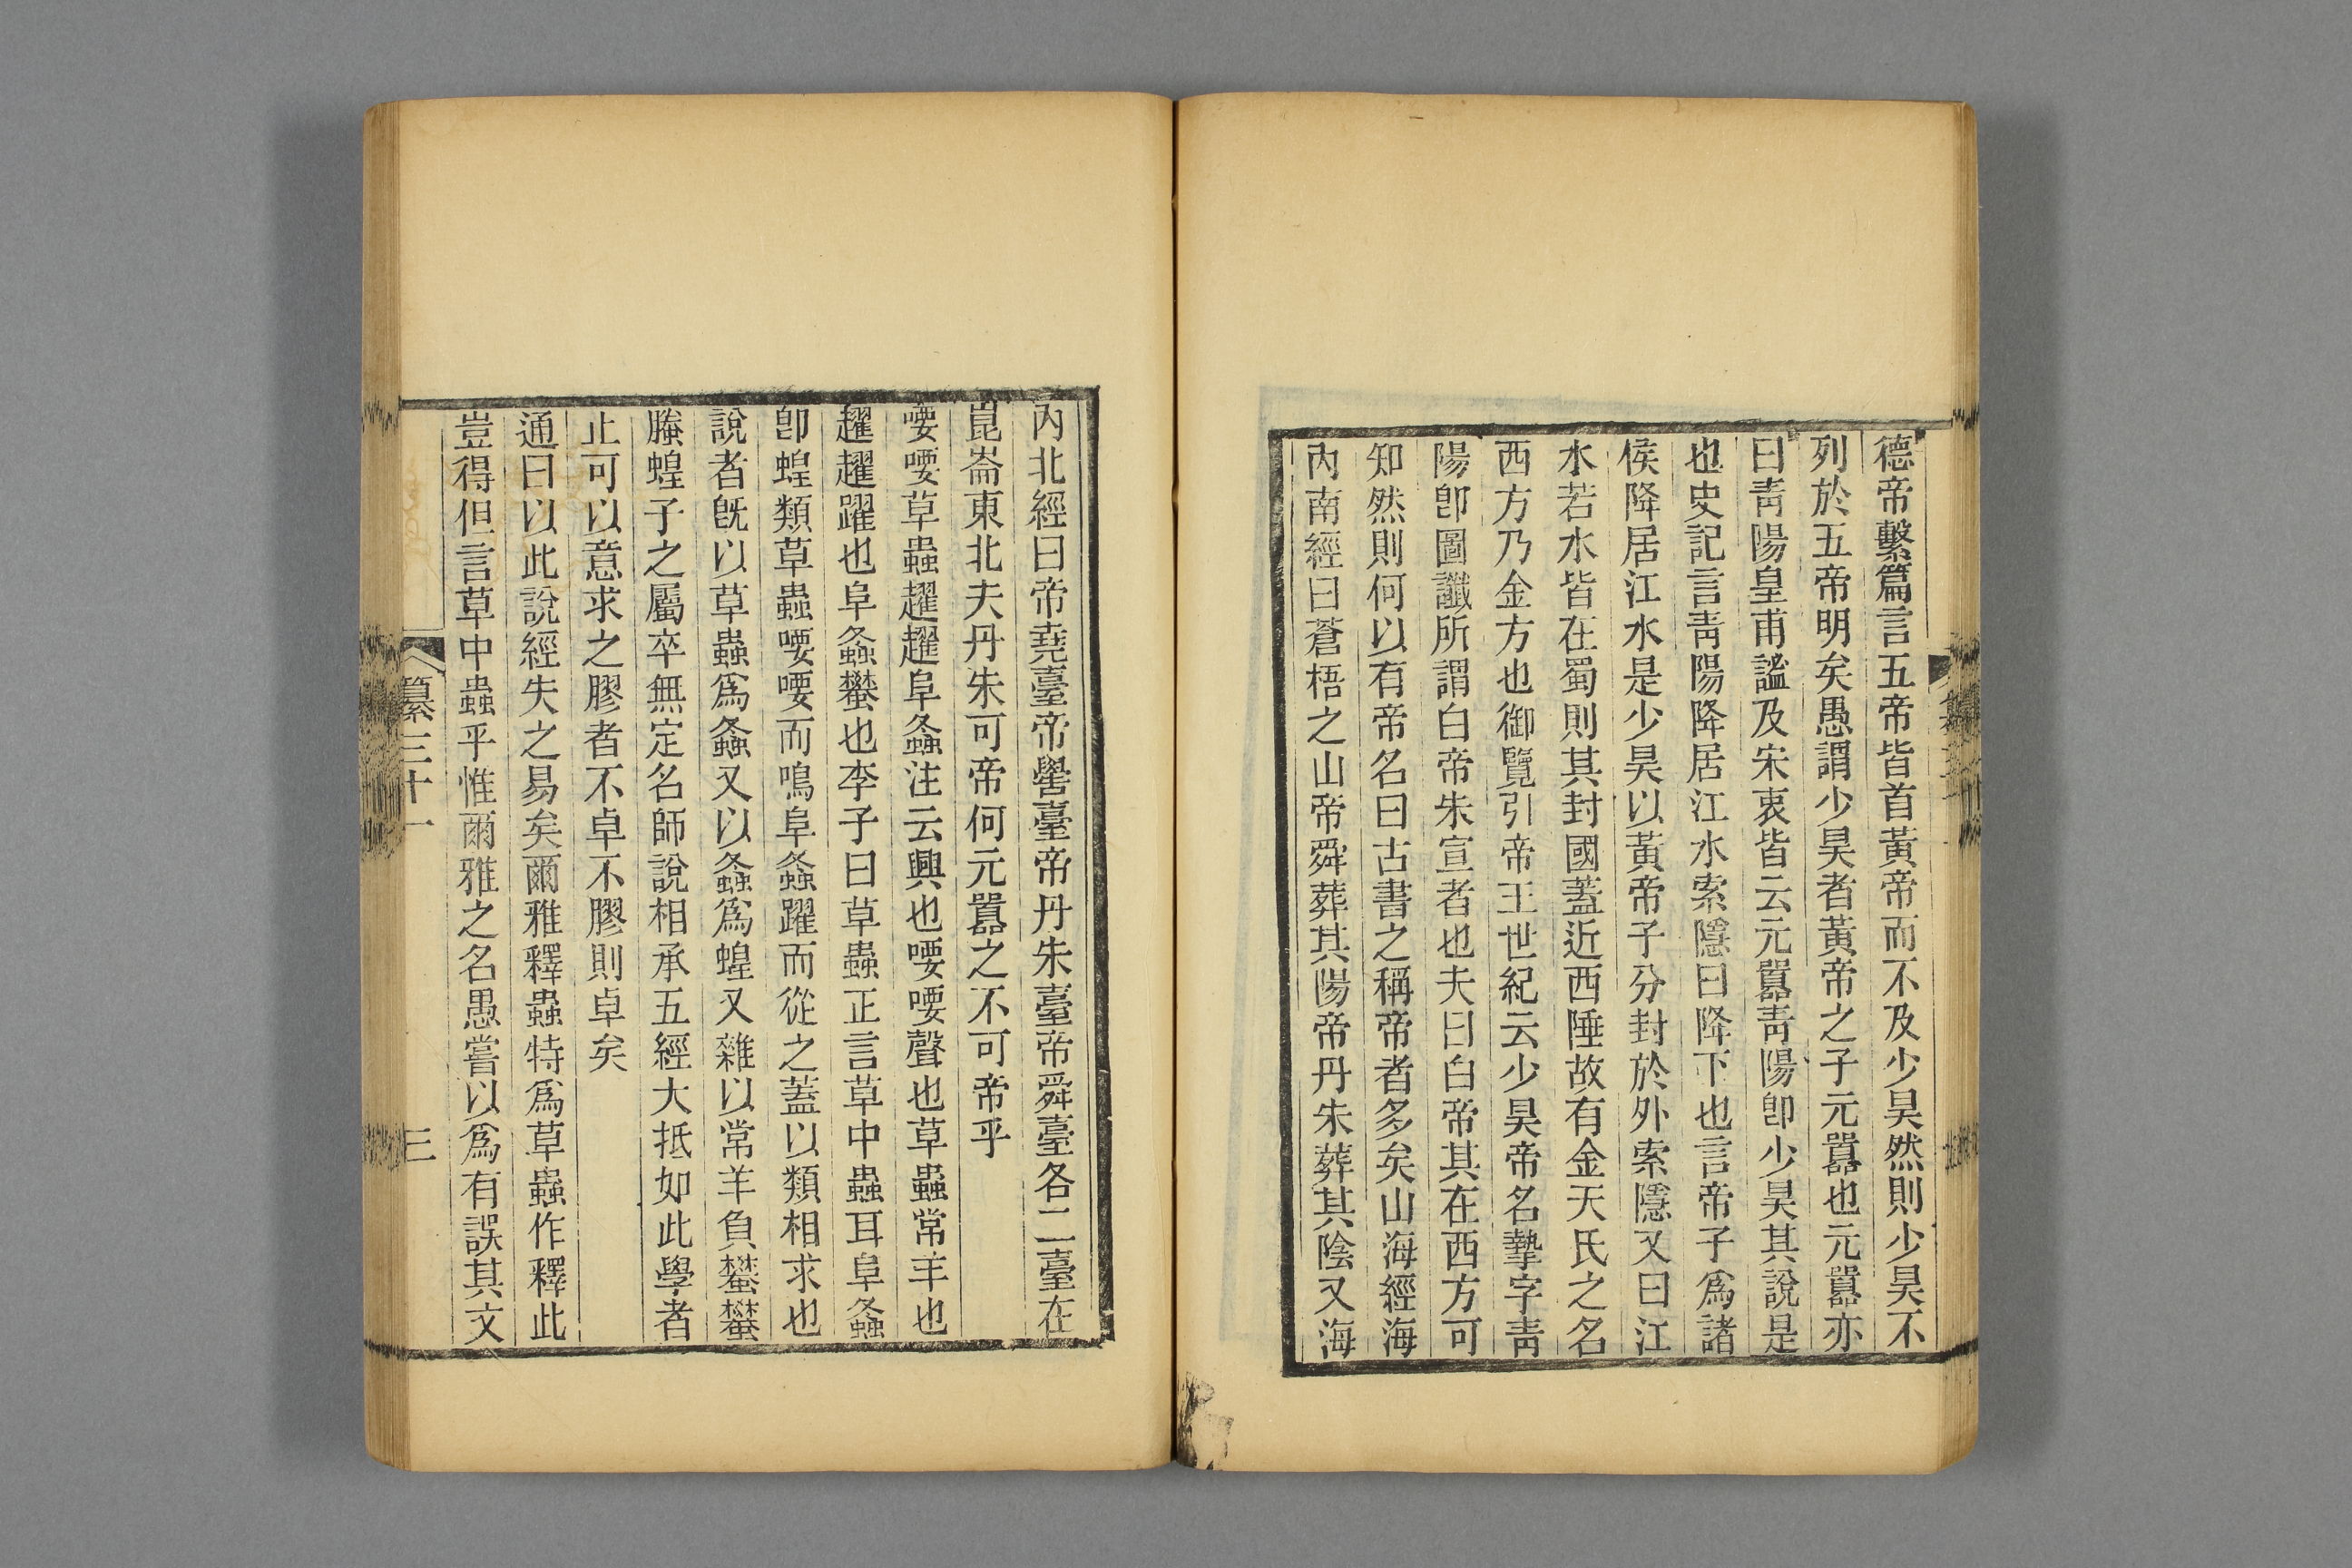 德帝繫篇言五帝皆首黃帝而不及少昊然則少昊不
列於五帝明矣愚謂少昊者黃帝之子元囂也元囂亦
曰靑陽皇甫謐及宋衷皆云元囂靑陽卽少昊其說是
也史記言靑陽降居江水索隱曰降下也言帝子爲諸
侯降居江水是少昊以黃帝子分封於外索隱又曰江
水若水皆在蜀則其封國蓋近西陲故有金天氏之名
西方乃金方也御覽引帝王世紀云少昊帝名摯字靑
陽卽圖讖所謂白帝朱宣者也夫曰白帝其在西方可
知然則何以有帝名曰古書之稱帝者多矣山海經海
內南經曰蒼梧之山帝舜葬其陽帝丹朱葬其陰又海
內北經曰帝堯臺帝嚳臺帝丹朱臺帝舜臺各二臺在
崑崙東北夫丹朱可帝何元囂之不可帝乎
喓喓草蟲趯趯阜螽注云興也喓喓聲也草蟲常羊也
趯趯躍也阜螽蠜也李子曰草蟲正言草中蟲耳阜螽
卽蝗類草蟲喓喓而鳴阜螽躍而從之蓋以類相求也
說者旣以草蟲爲螽又以螽爲蝗又雜以常羊負蠜蠜
螣蝗子之屬卒無定名師說相承五經大抵如此學者
止可以意求之膠者不卓不膠則卓矣
通曰以此說經失之易矣爾雅釋蟲特爲草蟲作釋此
豈得但言草中蟲乎惟爾雅之名愚嘗以爲有誤其文
纂三十一
三